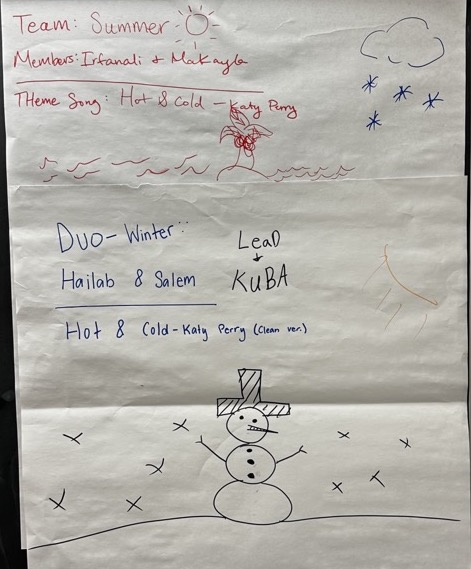 Team: Summer
Members: Irfanali & Makayla
THeme Song: Hot & cold - Katy Perry
Duo - Winter:
Hailab & Salem
LeaD
+
KuBA
Hot & Cold - Katy Perry (Clean ver.)